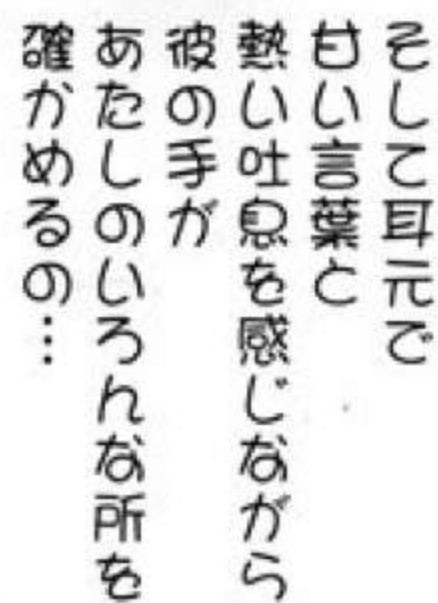 そして耳元で
甘い言葉と
熱い吐息を感じながら
彼の手が
あたしのいろんな所を
確かめるの…